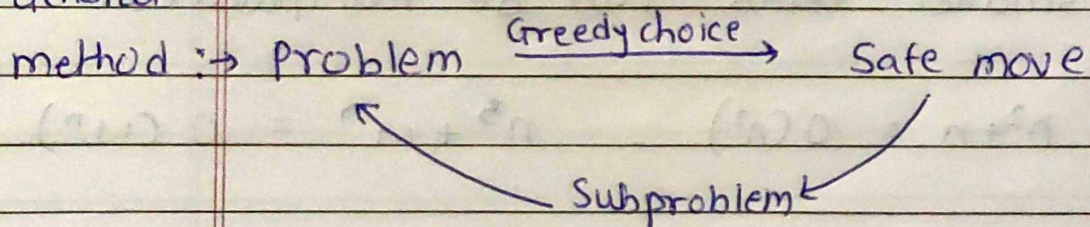 method :→ Problem Greedy choice → Safe move
Subproblem